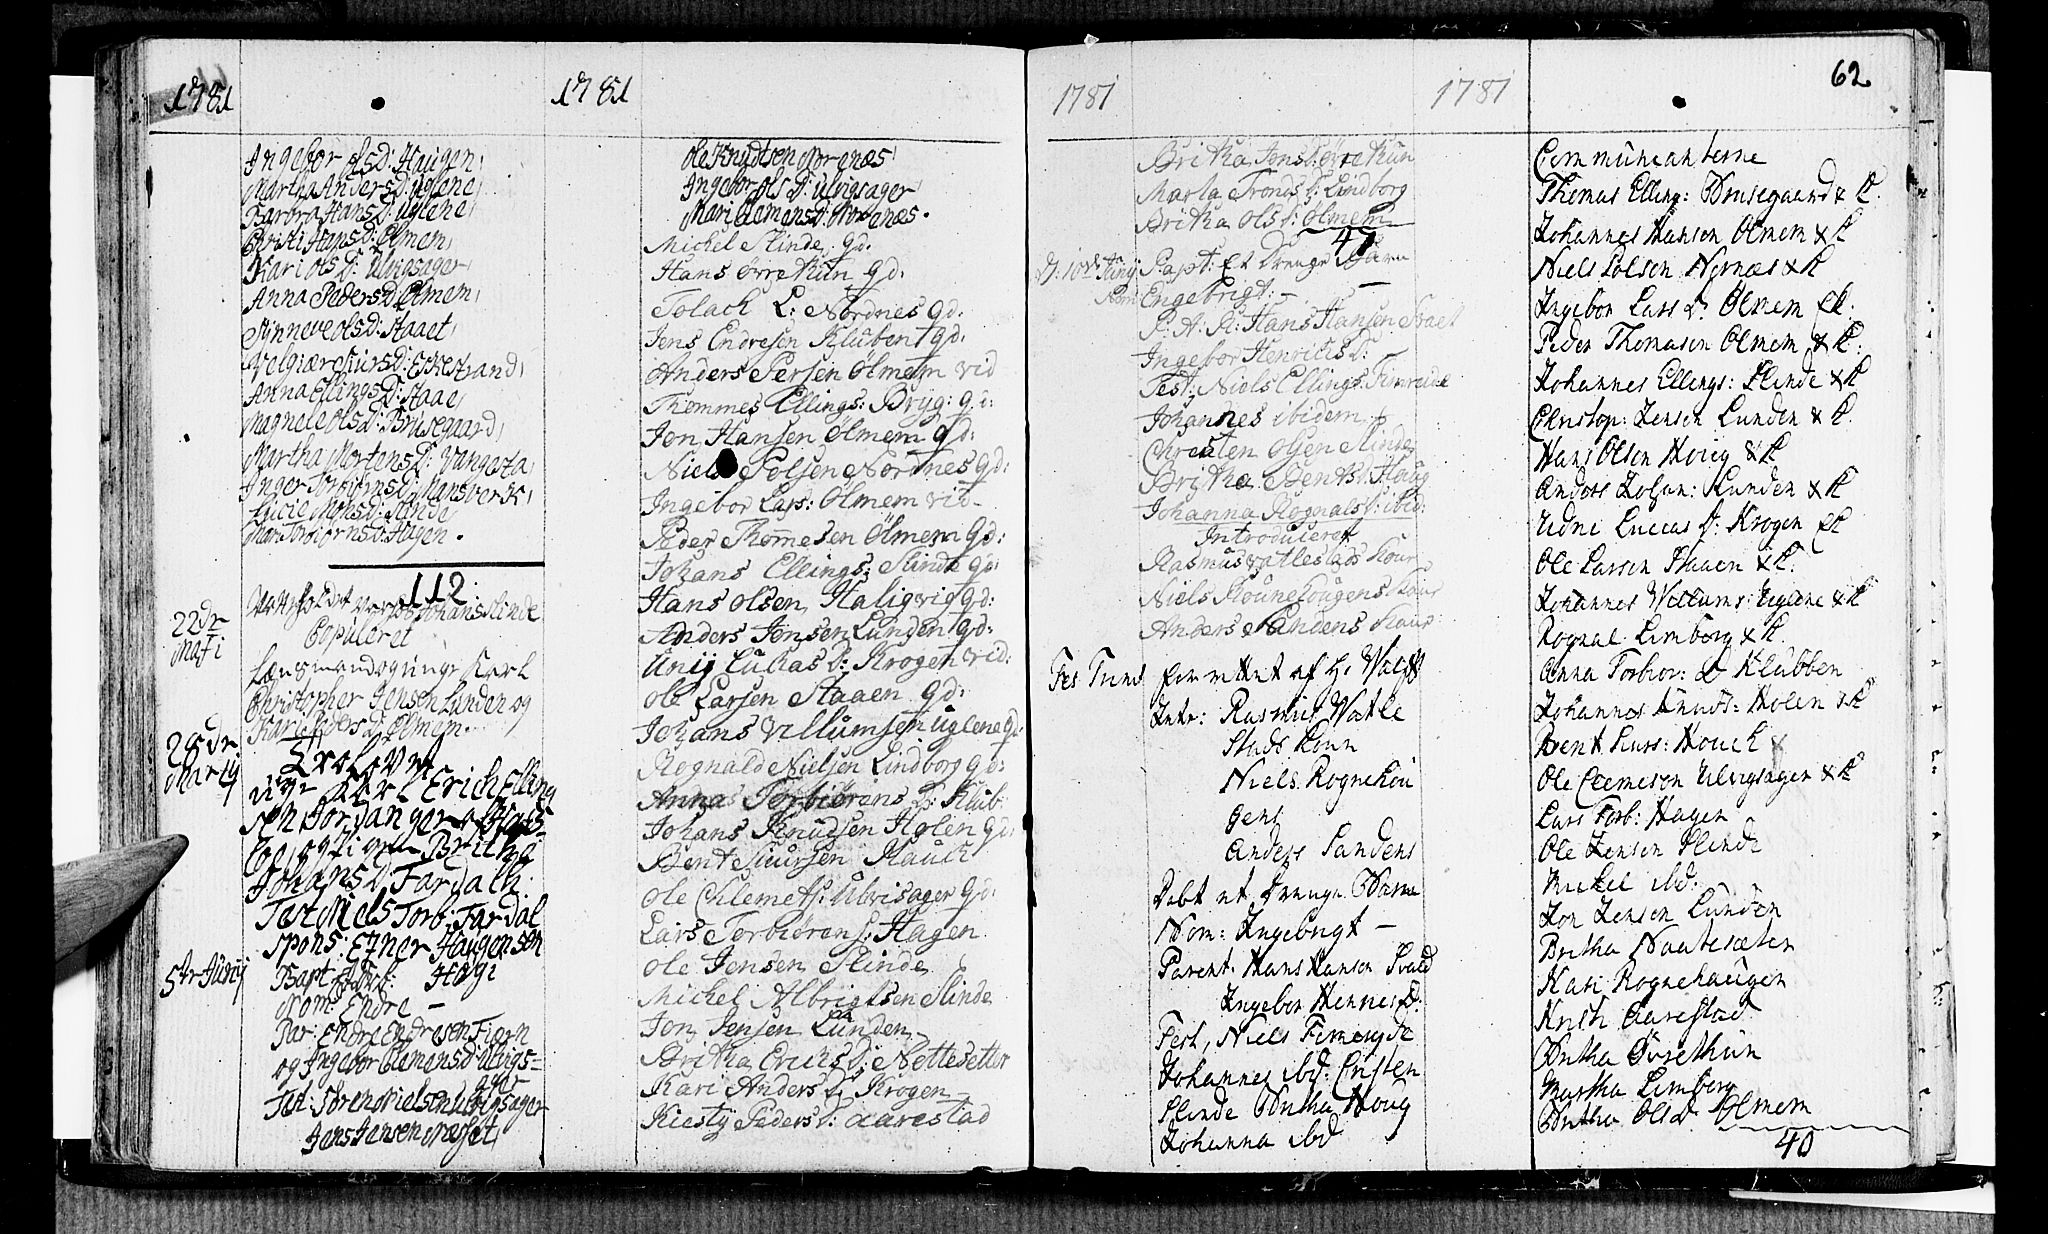 1781
Ingebor olsd: Haugen
Martha Andersd: Uglene
Barbra Hansd: Uglene
Christi Hansd: Ølmem
Kari ols D: Ulvigsager
Anna Pedersd: Ølmem
Synneve olsd: Haaet
Anna Ellings D: Staae
Magnele olsd: Brusegaard
Martha Mortens D: Vangesta
Inger Torbiørnsd: Mansverk
Mari Torbiørnsd: Hagen.
112.
22dr
Maji
Johans Slinde
Copuleret
Lænsmand og unge Karl
Christopher Jensen Lunden og
Kari Peders D: Ølmem.
28dr
Marty
ung Karl Erich Elling
sen Jordanger
og Pigen Britha
Johans D: Fardalh.
Test: Niels Torb: Fardal
spons: Efner Haugensen
Hagi
5tr July
Bapt
Nom: Endre –
Par: Endre Endresen Fiørn
og Ingebor Clemensd Ulvigs=
ager
Test: Søren Nielsen Ulvigsager
Jens Jensen Næsset
1781
Ole Knudtsen Norenæs
Ingebor ols D: Ulvigsager
Mari Clemens D: Norenæs.
Michel Slinde gd.
Hans Ørrekun gd:
Tolach L: Nordnes gd:
Jens Endresen Kluben gd:
Anders Persen Ølmem vid
Thommes Ellings: Bryg: gd:
Jon Hansen Ølmem gd:
Niels Polsen Nordnes gd:
Ingebor Lass: Ølmem vid
Peder Thomesen Ølmem gd:
Johans Ellings: Slinde gd:
Hans Olsen Haligvig gd:
Anders Jensen Lunden gd:
Unij Lukas D: Krogen vid:
Ole Larsen Staaen gd:
Johans Villumsen Uglene gd
Rognald Nielsen Lindborg gd:
Anna Torbiørens D: Klub:
Johans Knudsen Holen gd:
Bent Siursen Hauch
Ole Chlemets: Ulvisager gd:
Lars Torbiørens: Hagen
Ole Jensen Slinde
Michel Albrigtsen Slinde
Jon Jensen Lunden
Britha Erichs D: Nettesetter
Kari Anders D Krogen
Kiesty Peders D: aarestad
1781
Britha Jens D: Ørrekun
Marta Tronds D: Lindborg
Britha Ols D: Ølmem
47
D: 10de Junij
Bapt: Et Drenge Barn
Nom: Engebrigt: –
P: A: R: Hans Hansen Svaet
Ingebor Henrichs D:
Test: Niels Ellings: Fimreite
Johannes ibidem
Chresten Olsen Slinde
Britha Bents D: Houg
Johanna Rognals D: ibid:
Introduceret
Rasmus Vatlestads Kour
Niels Rounehougens Kour
Anders Sandens Kour
Fes Trinit forrettet af H: Wulff
Intr: Rasmus Watle
Stads Kour
Niels Rognehou
gens
Anders Sandens
Døbt et drenge Barn
Nom: Ingebrigt –
Parent: Hans Hansen Svaid
Ingebor Hennes D:
Test, Niels Fimreyde
Johannes ibd: Cristen
Slinde Britha Houg
Johanna ibd
1781
62
Communicanterne
Thomas Elling: Brusegaard & K.
Johannes Hansen Ølmem & K
Niels Polsen Nornæs & K
Ingebor Lars D: Ølmem Ek:
Peder Thomasen Ølmem & K.
Johannes Ellings: Slinde & K
Christop: Jensen Lunden & K.
Hans Olsen Houg & K
Anders Johan: Lunden & K
Udni Luccas D: Krogen Ek
Ole Larsen Staaen & K.
Johannes Willums: Uglene & K
Rognal Limborg & K.
Anna Torbior: D Klubben
Johannes Knuds: Holen & K
Bent Siurs: Houch &
Ole Clemeson Ulvigsager & K
Lars Torb: Hagen
Ole Jensen Slinde
Mickel ibd.
Jon Jensen Lunden
Britha Naatesæter
Kari Rognehaugen
Kristi Aarestad
Britha Ourekhun
Martha Limborg
Britha Olsd Ølmem
40